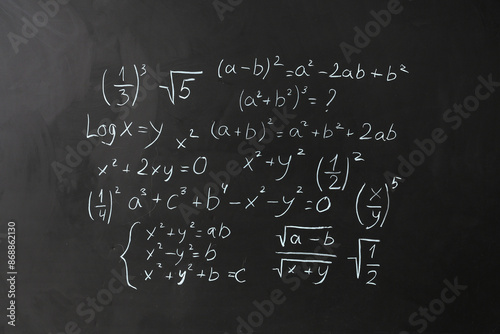 (1/3)³ √5 (a-b)²=a²-2ab+b²
(a²+b²)³=?
Log x=y x² (a+b)²=a²+b²+2ab
x²+2xy=0 x²+y² (1/2)²
(1/4)² a³+c³+b⁴-x²-y²=0 (x/y)⁵
x²+y²=ab
x²-y²=b
x²+y²+b=c
√a-b / √x+y √1/2
Adobe Stock | #868862130